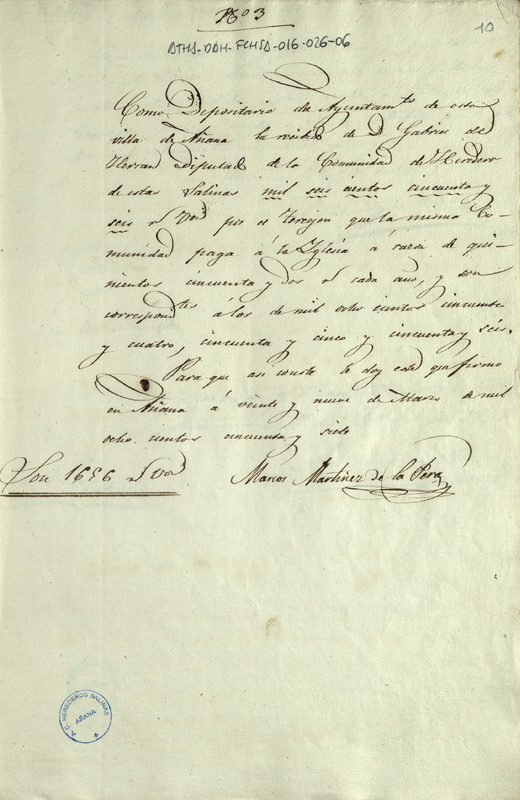 Nº 3
10
ATHA-DAH-FCHSA-016-026-06
Como Depositario de Ayuntamto de esta
villa de Añana he recibido de D Gabriel de
Herran Diputado de la Comunidad de Herederos
de estas Salinas mil seis cientos cincuenta y
seis rs von por el que la misma Co-
munidad paga á la Yglesia á razon de qui-
nientos cincuenta y dos rs cada año, y son
correspondtes á los de mil ocho cientos cincuenta
y cuatro, cincuenta y cinco y cincuenta y séis.
Para que asi conste le doy este que firmo
en Añana á veinte y nueve de Marzo de mil
ocho cientos cincuenta y siete
Son 1656 rs von
Marcos Martinez de la Pera
C. HEREDEROS SALINAS
AÑANA